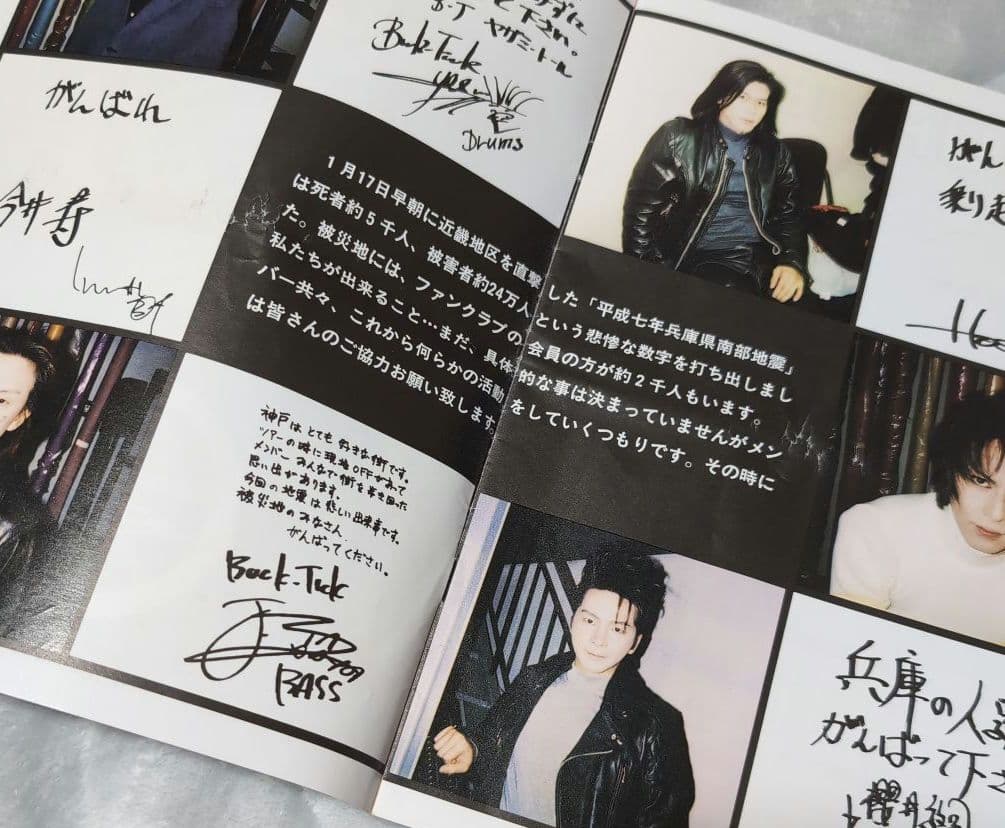 て下さい。
B-T ヤガミ・トール
Buck-Tick
Drums
がんばれ
今井寿
１月17日早朝に近畿地区を直撃した「平成七年兵庫県南部地震」
は死者約５千人、被害者約24万人という悲惨な数字を打ち出しまし
た。被災地には、ファンクラブの会員の方が約２千人もいます。
私たちが出来ること…まだ、具体的な事は決まっていませんがメン
バー共々、これから何らかの活動をしていくつもりです。その時に
は皆さんのご協力お願い致します。
がん
乗り越
神戸はとても好きな街です。
ツアーの時に現地OFFがあって
メンバーみんなで街を歩き回った
思い出があります。
今回の地震は悲しい出来事です。
被災地のみなさん
がんばってください。
Buck-Tick
BASS
兵庫の人
がんばって下さ
櫻井